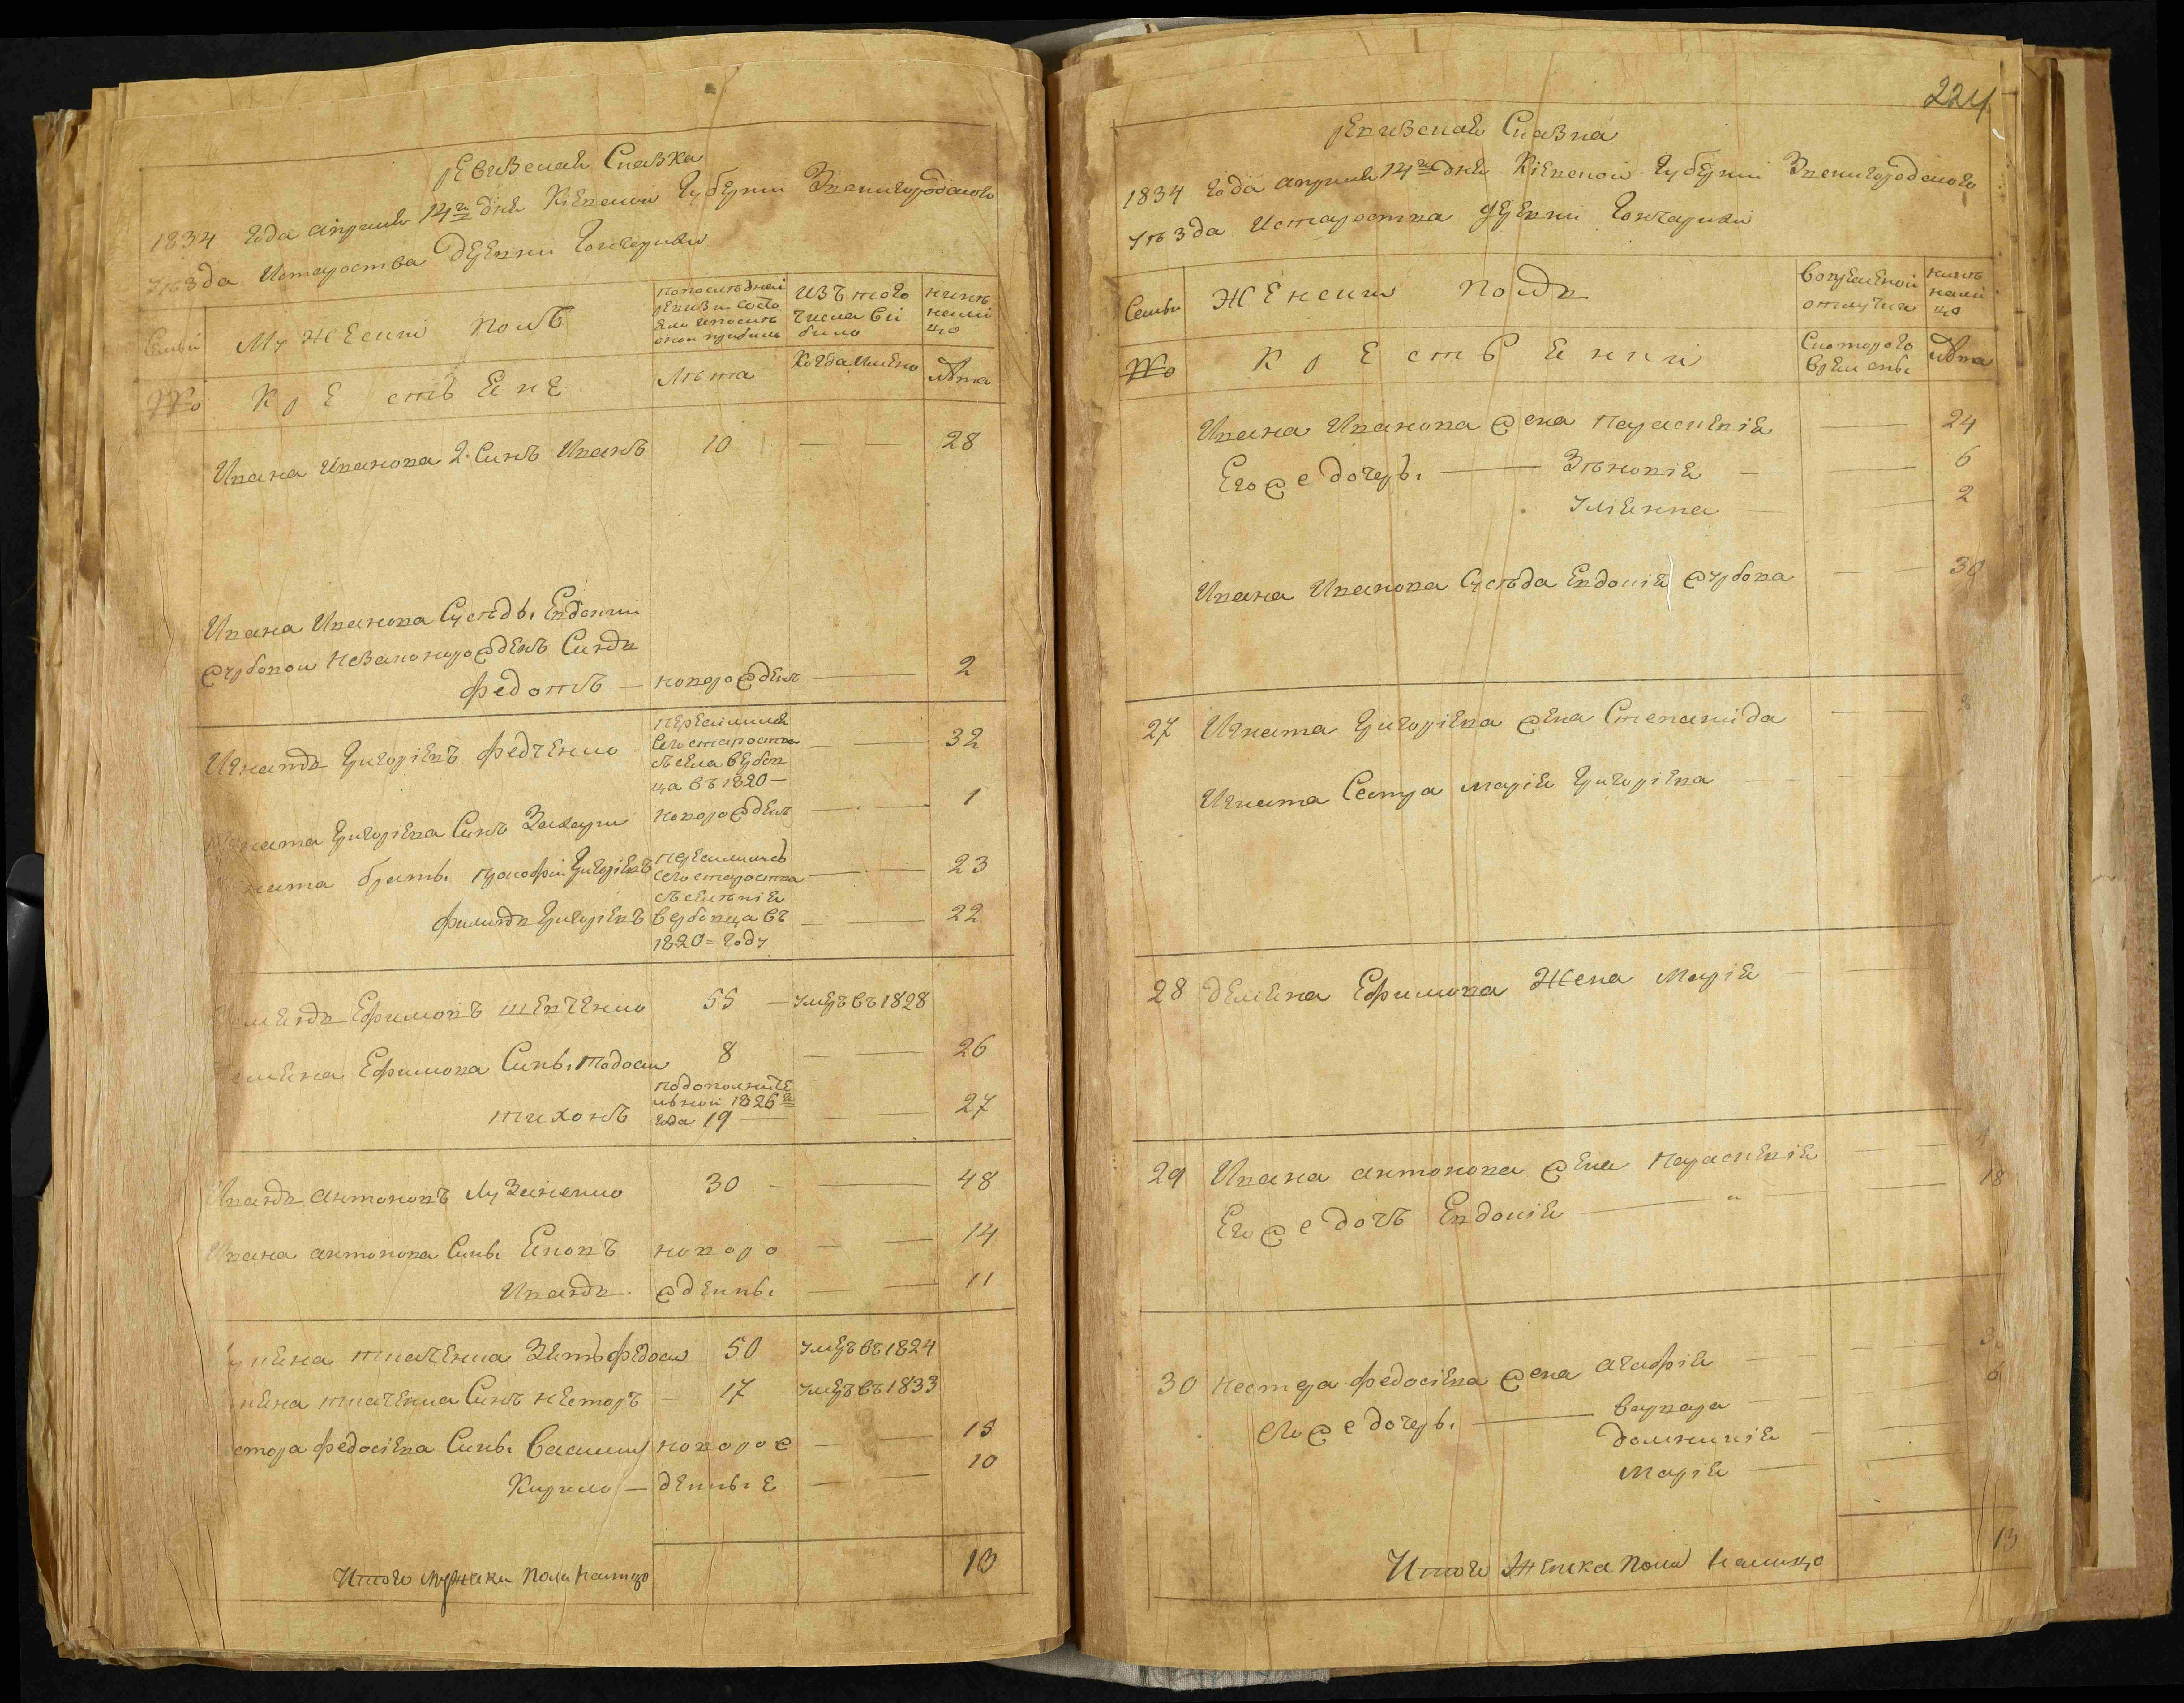 Ревизская Сказка
1834 года апреля 14го дня Киевской Губернии Звенигородского
уезда Истароства деревни Гончарихи
Семьи
Мужеский полъ
попоследней ревизии состояло и после оной прибыло
изъ того числа выбыло
ныне налицо
№
Крестьяне
Лета
Когда именно
лета
Ивана Иванова 2. Синъ Иванъ 10 — — 28
Ивана Иванова Суседы Евдокии
Журбовой незаконорожденъ Синъ
Федотъ — новорожденъ — 2
Игнатъ Григориевъ Федченко
Сего староства
съ села Вербовца въ 1820 —
— — 32
Игната Григориева Синъ Захари новорожденъ — — 1
Игната браты Прокофий Григориевъ
Сего староства — — 23
Филипъ Григориевъ Вербовца въ — — 22
1820 = году
Ефимовъ Шевченко 55 — умеръ въ 1828
Ефимова Сины Тодосий 8 — — 26
Тихонъ
подополнительной 1826го
года 19 — — 27
Иванъ Антоновъ Лузаненко 30 — — 48
Ивана Антонова Сины новоро — — 14
Иванъ. жденны — — 11
Ткаченка Зять Федосий 50 умеръ въ 1824
Ткаченка Синъ Несторъ — 17 умеръ въ 1833
Федосиева Сины Василий новорож — — 13
Кирило — денные — — 10
Итого мужеска пола налицо 13
224
Ревизская Сказка
1834 года апреля 14го дня Киевской Губернии Звенигородского
уезда Истароства деревни Гончарихи
Семьи
Женский полъ
Вовременной отлучки
ныне налицо
№
Крестьянки
Скоторого времены
лета
Ивана Иванова жена Параскевия — 24
Его же дочеры — Зеновия — — 6
Улиянна — — 2
Ивана Иванова Суседа Евдокия Журбова — — 30
27 Игната Григориева жена Степанида —
Игната Сестра Мария Григориева —
28 Ефимова Жена Мария —
29 Ивана Антонова жена Параскевия —
Его же дочъ Евдокия — " — 18
30 Нестера Федосиева жена Агафия —
его же дочеры — Варвара — 6
Домникия —
Мария —
Итого Женска пола налицо 13